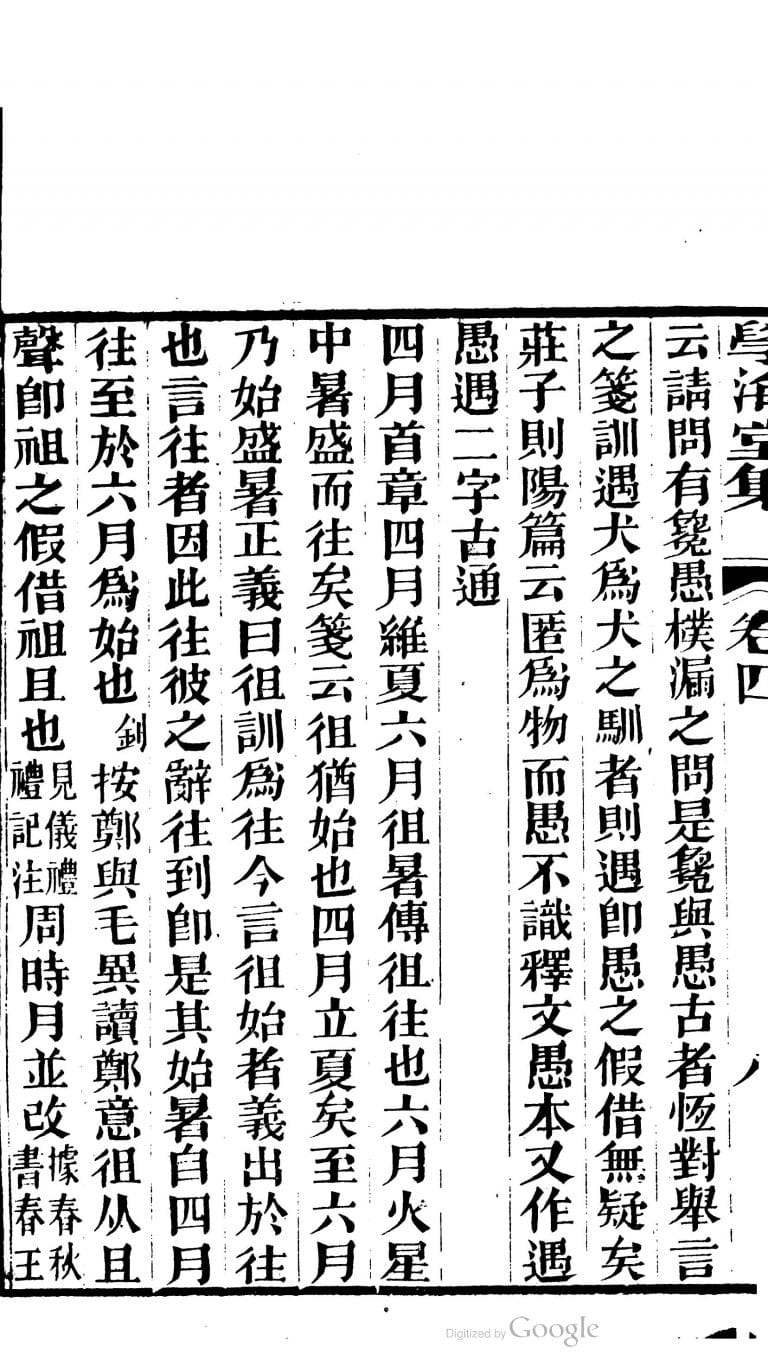 學海堂集 卷四 八
云請問有毚愚樸漏之問是毚與愚古者恆對舉言
之箋訓遇犬爲犬之馴者則遇卽愚之假借無疑矣
莊子則陽篇云匿爲物而愚不識釋文愚本又作遇
愚遇二字古通
四月首章四月維夏六月徂暑傳徂往也六月火星
中暑盛而往矣箋云徂猶始也四月立夏矣至六月
乃始盛暑正義曰徂訓爲往今言徂始者義出於往
也言往者因此往彼之辭往到卽是其始暑自四月
往至於六月爲始也釗按鄭與毛異讀鄭意徂从且
聲卽祖之假借祖且也見儀禮禮記注周時月並改據春秋書春王
Digitized by Google